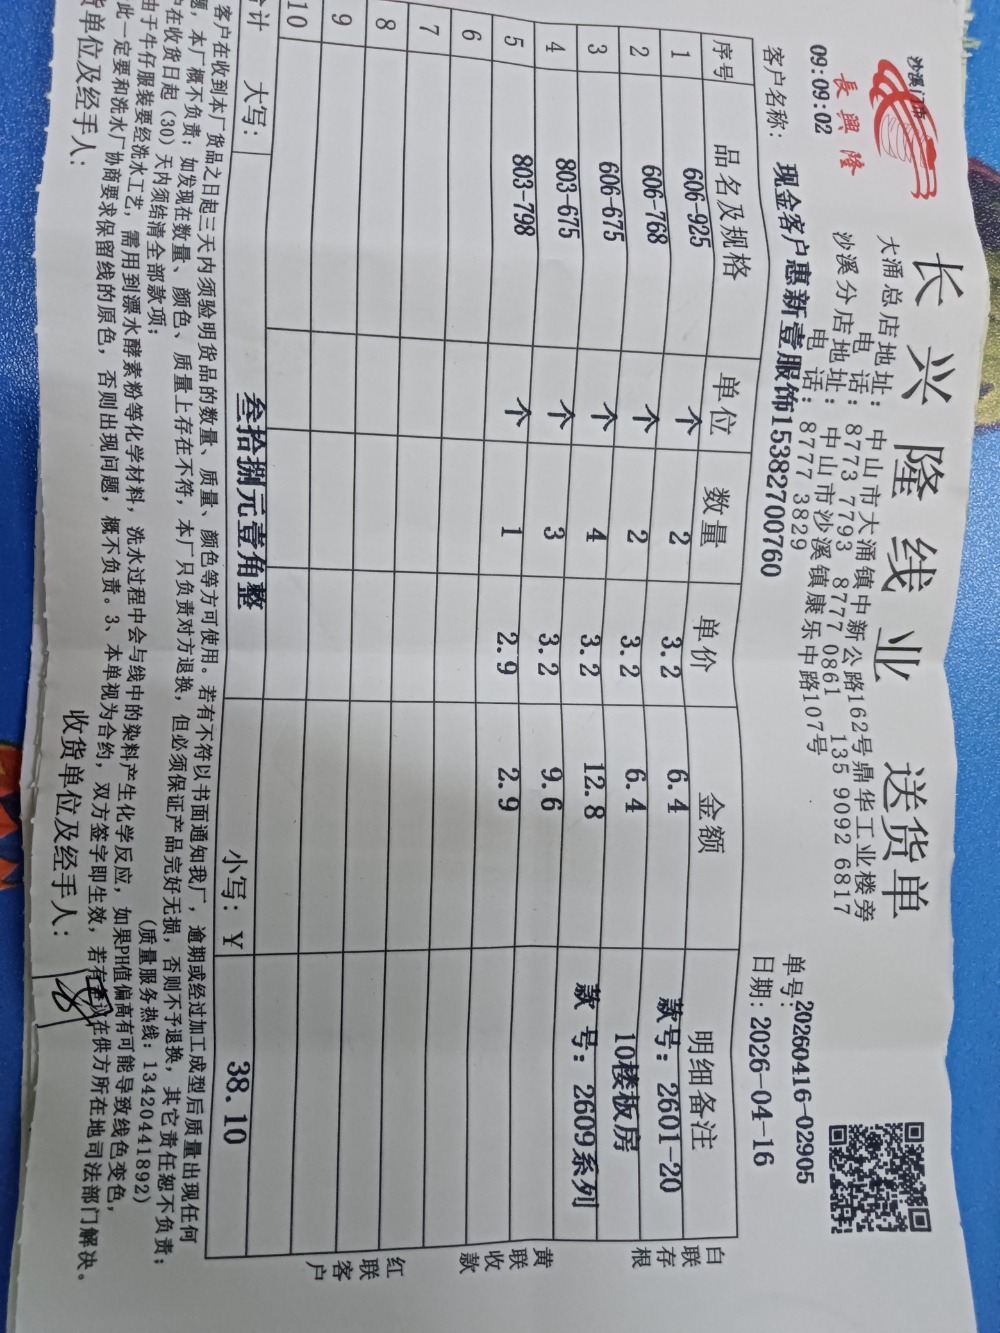 沙溪门市
長興隆
09:09:02
长兴隆线业 送货单
大涌总店地址：中山市大涌镇中新公路162号鼎华工业楼旁
电话：8773 7793 8777 0861 135 9092 6817
沙溪分店地址：中山市沙溪镇康乐中路107号
电话：8777 3829
单号：20260416-02905
客户名称： 现金客户惠新壹服饰15382700760
日期：2026-04-16
序号 品名及规格 单位 数量 单价 金额 明细备注
1 606-925 个 2 3.2 6.4 款号：2601-20
2 606-768 个 2 3.2 6.4 10楼板房
3 606-675 个 4 3.2 12.8 款 号：2609系列
4 803-675 个 3 3.2 9.6
5 803-798 个 1 2.9 2.9
6
7
8
9
10
合计 大写： 叁拾捌元壹角整 小写：￥ 38.10
白联存根
黄联收款
红联客户
客户在收到本厂货品之日起三天内须验明货品的数量、质量、颜色等方可使用。若有不符以书面通知我厂，逾期或经过加工成型后质量出现任何
题，本厂概不负责；如发现在数量、颜色、质量上存在不符，本厂只负责对方退换，但必须保证产品完好无损，否则不予退换，其它责任恕不负责；
户在收货日起（30）天内须结清全部款项； (质量服务热线：13420441892)
由于牛仔服装要经洗水工艺，需用到漂水酵素粉等化学材料，洗水过程中会与线中的染料产生化学反应，如果PH值偏高有可能导致线色变色，
此一定要和洗水厂协商要求保留线的原色，否则出现问题，概不负责。3、本单视为合约，双方签字即生效，若有 议在供方所在地司法部门解决。
货单位及经手人： 收货单位及经手人：